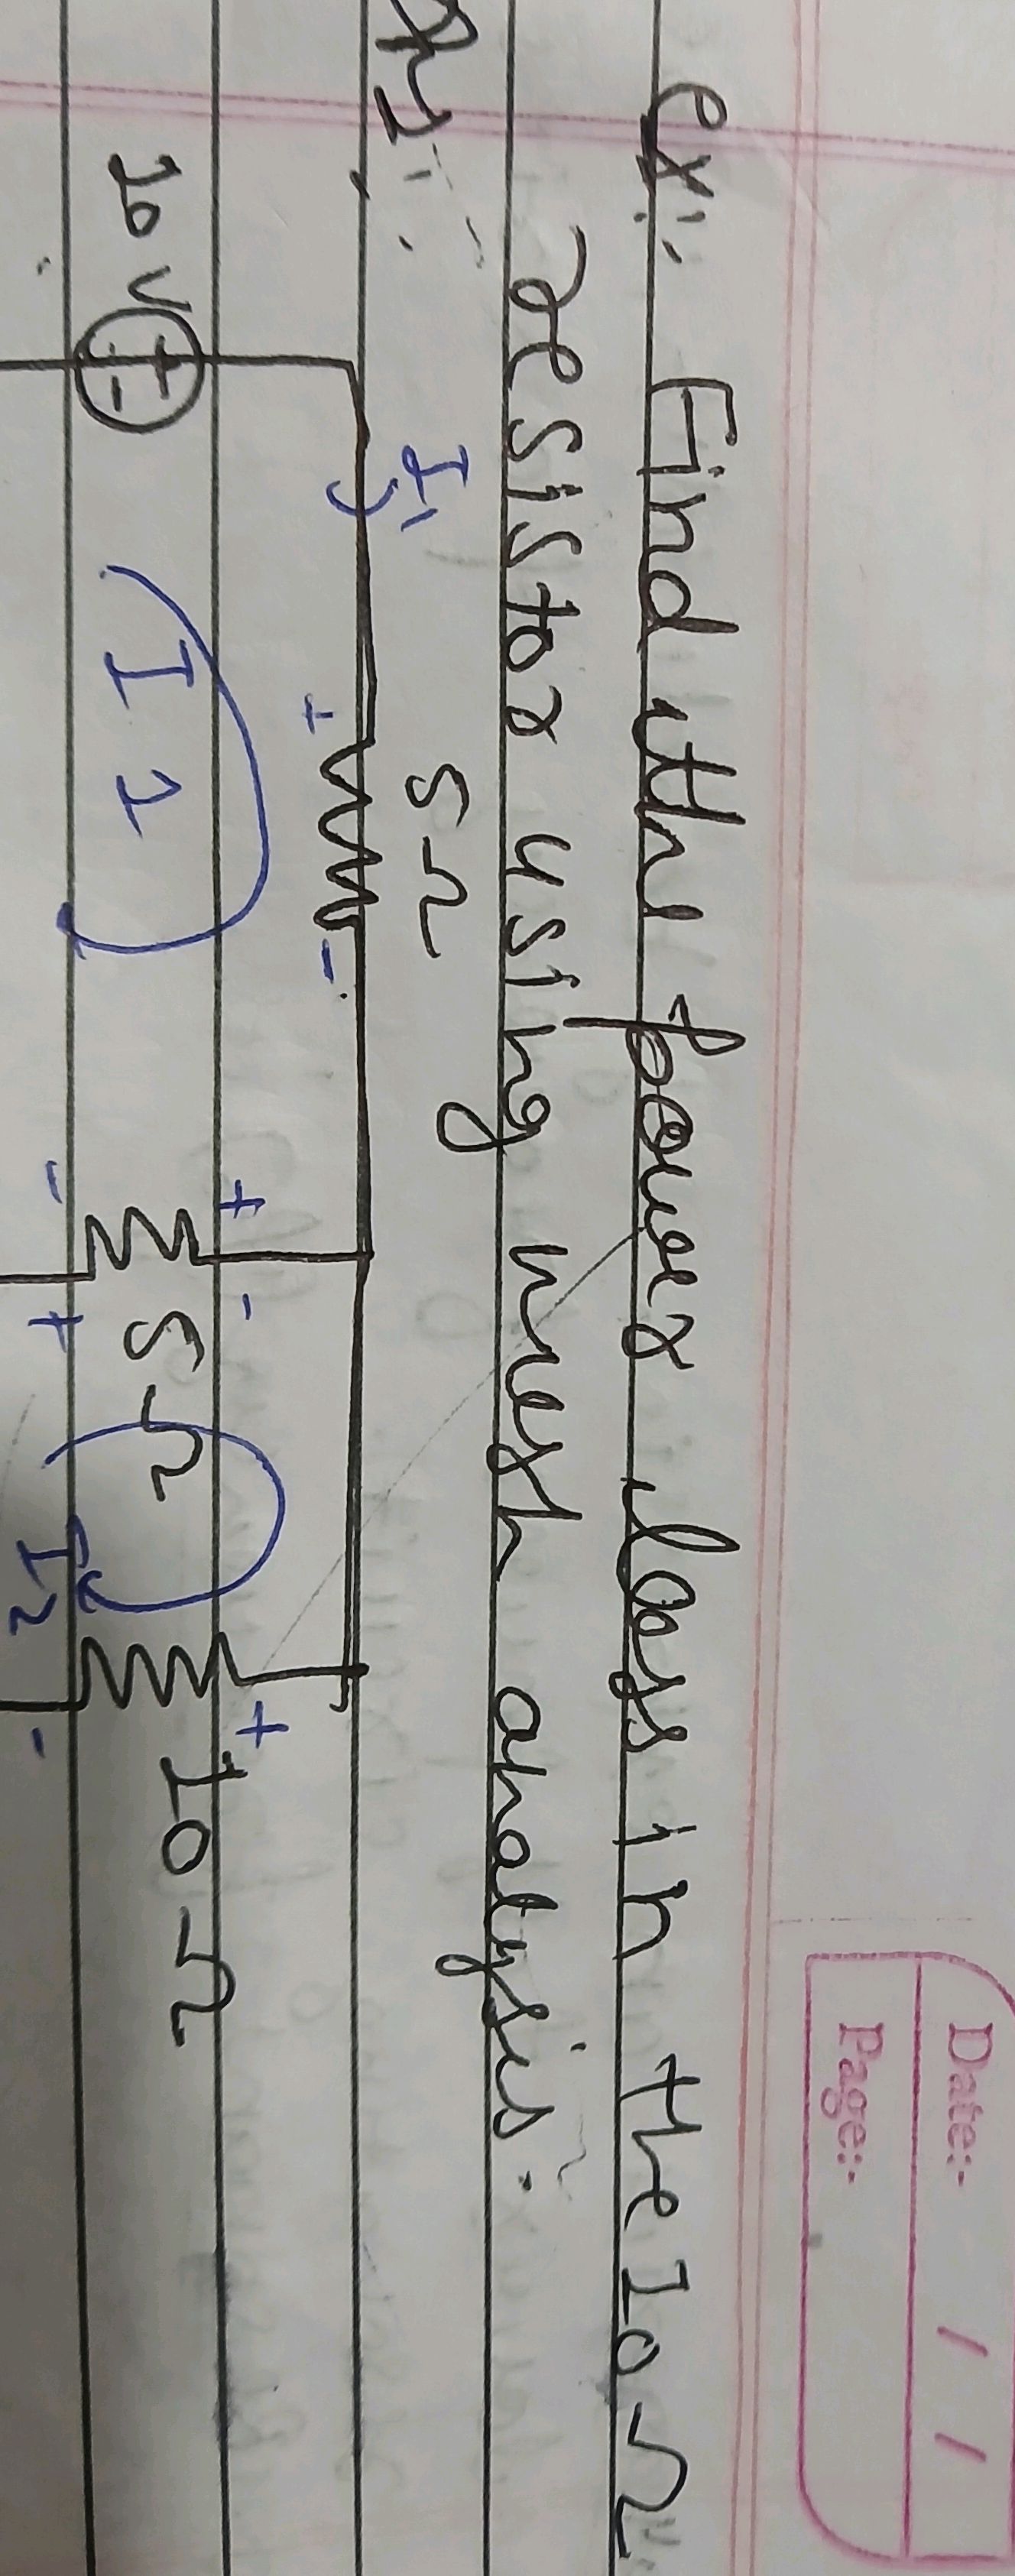 Date:- / /
Page:-
ex:- Find the power loss in the 10 Ω
resistor using mesh analysis.
I1
5 Ω
+ -
10 V + - I 1 + - 5 Ω - + I2 + - 10 Ω